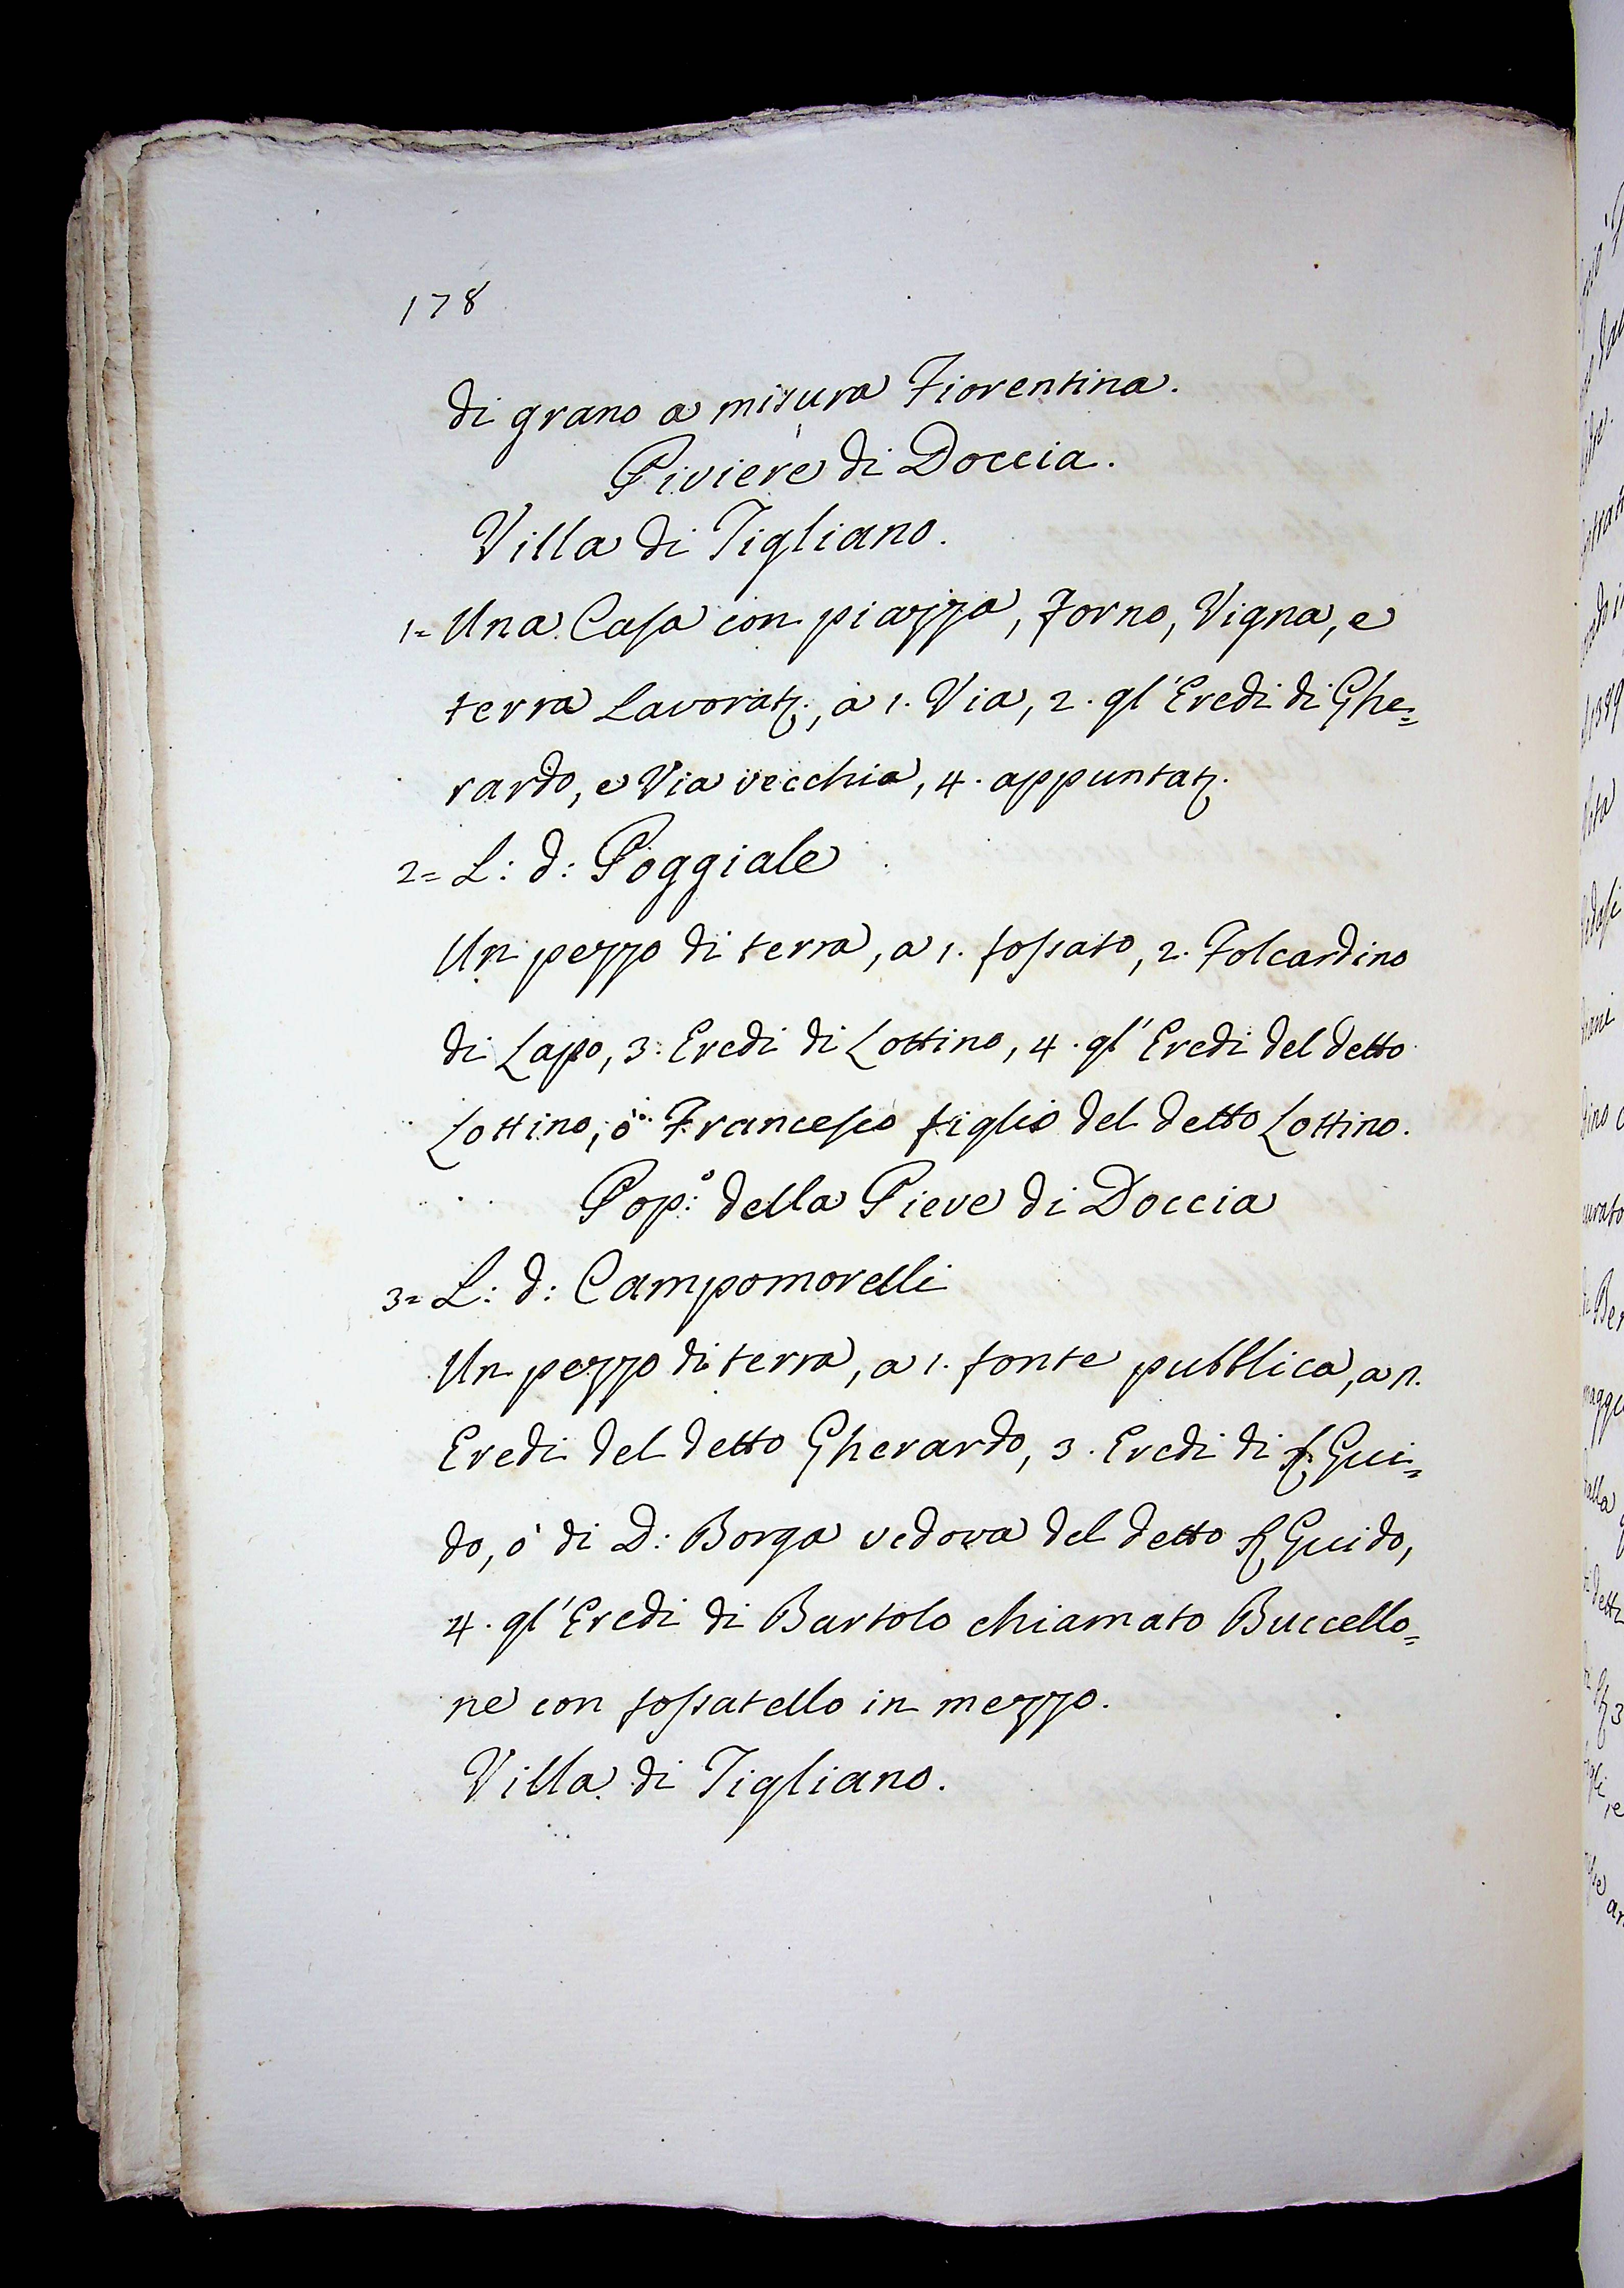 178
di grano a misura Fiorentina.
Piviere di Doccia.
Villa di Tigliano.
1= Una Casa con piazza, forno, Vigna, e
terra Lavorat., a 1. Via, 2. gl'Eredi di Ghe=
rardo, e Via vecchia, 4. appuntat.
2= L: d: Poggiale
Un pezzo di terra, a 1. fossato, 2. Folcardino
di Lapo, 3. Eredi di Lottino, 4. gl'Eredi del detto
Lottino, ò Francesco figlio del detto Lottino.
Pop:º della Pieve di Doccia
3= L: d: Campomorelli
Un pezzo di terra, a 1. fonte pubblica, a
Eredi del detto Gherardo, 3. Eredi di Gui=
do, ò di D: Borga vedova del detto Guido,
4. gl'Eredi di Bartolo chiamato Buccello=
ne con fossatello in mezzo.
Villa di Tigliano.